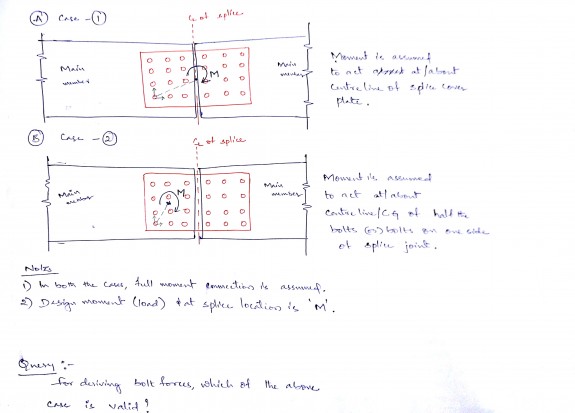 A Case - 1
CL of splice
Main
member
M
Main
member
Moment is assumed
to act at/about
centre line of splice cover
plate.
B Case - 2
CL of splice
Main
member
M
Main
member
Moment is assumed
to act at/about
centre line/CG of half the
bolts (or) bolts on one side
of splice joint.
Notes
1) In both the cases, full moment connection is assumed.
2) Design moment (load) at splice location is 'M'.
Query :-
for deriving bolt forces, which of the above
case is valid?